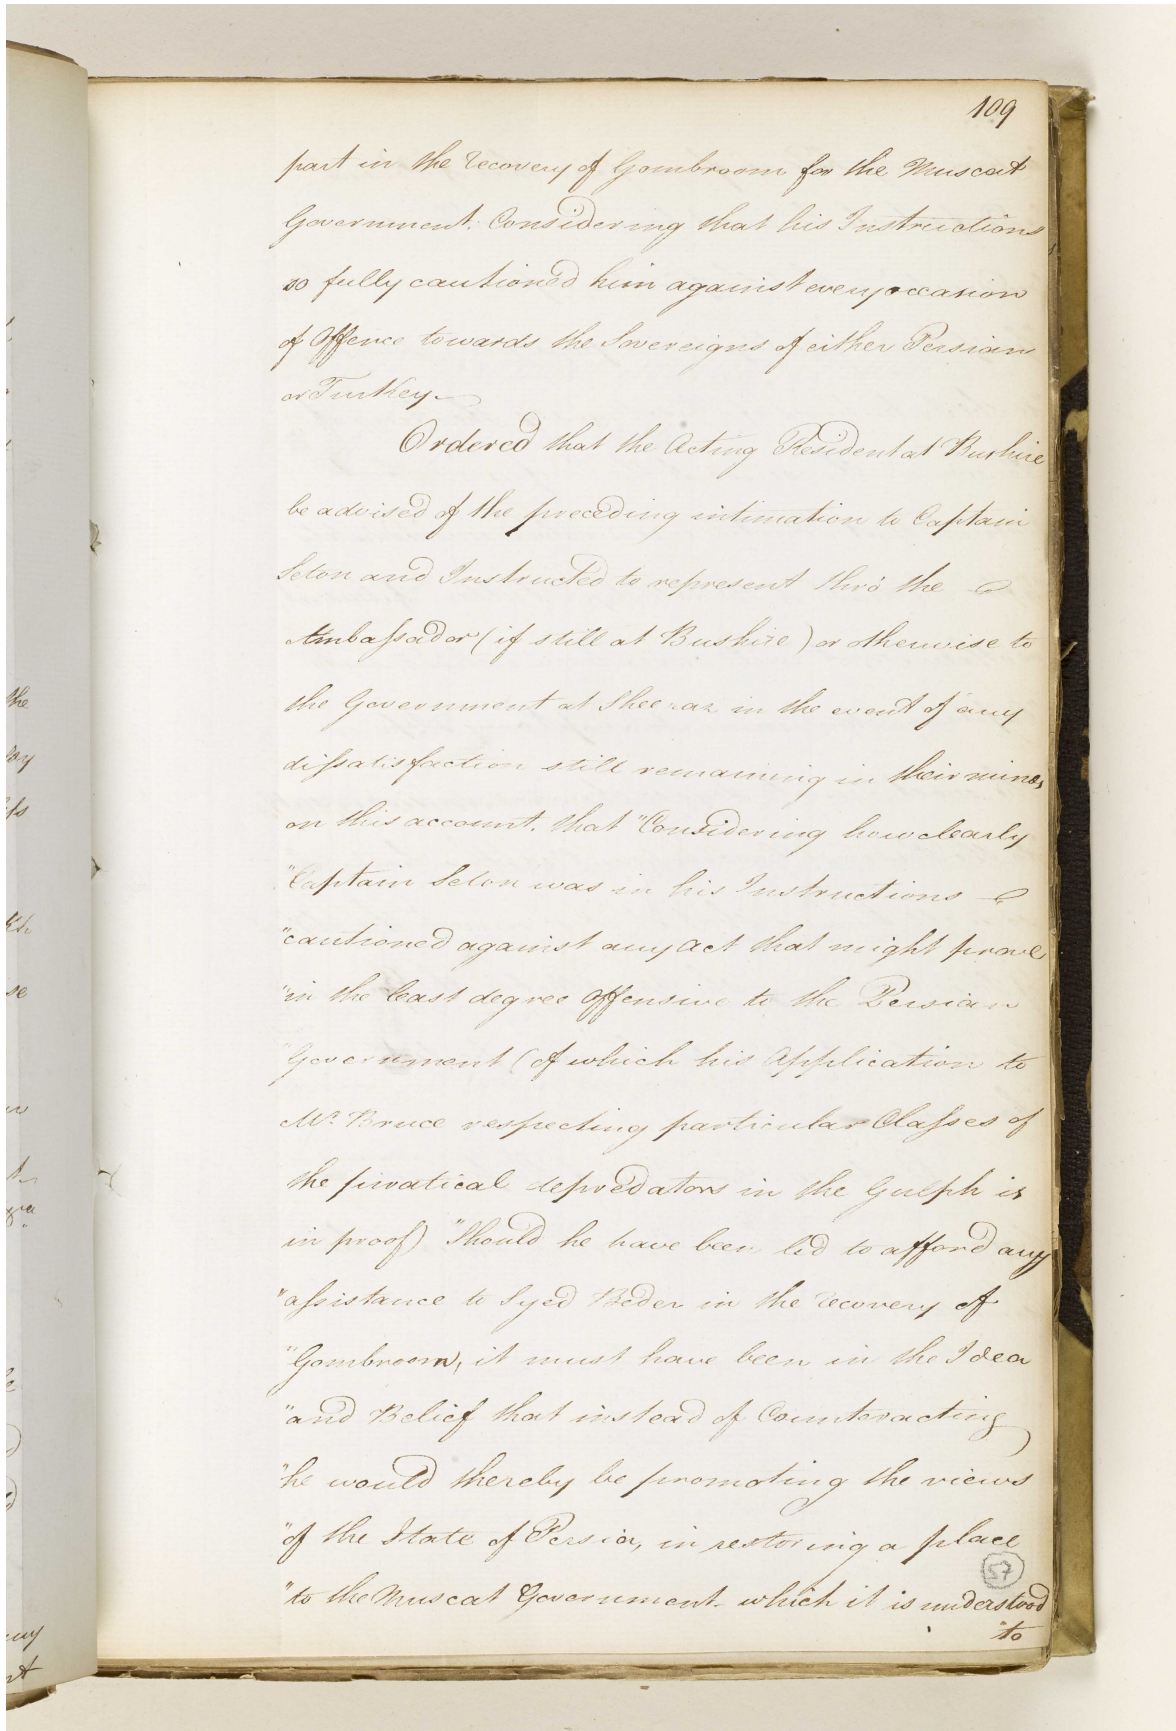 109
part in the recovery of Gombroom for the Muscat
Government. Considering that his Instructions
so fully cautioned him against every occasion
of Offence towards the Sovereigns of either Persian
or Turkey.
Ordered that the Acting Resident at Bushire
be advised of the preceding intimation to Captain
Seton and Instructed to represent thro' the
Ambassador (if still at Bushire) or otherwise to
the Government at Sheeraz in the event of any
dissatisfaction still remaining in their minds
on this account. that "Considering how clearly
"Captain Seton was in his Instructions
"cautioned against any act that might prove
"in the least degree offensive to the Persian
"Government (of which his Application to
Mr. Bruce respecting particular Classes of
the piratical depredators in the Gulph is
in proof) "Should he have been led to afford any
"assistance to Syed Beder in the recovery of
"Gombroom, it must have been in the Idea
"and Belief that instead of Counteracting
"he would thereby be promoting the views
"of the State of Persia, in restoring a place
57
"to the Muscat Government which it is understood
"to